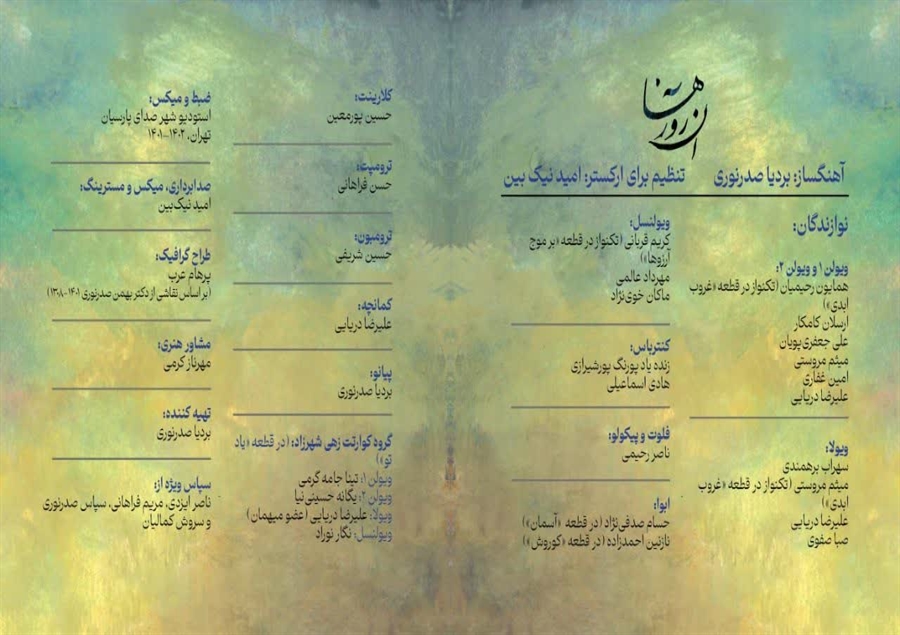 آن روزها
آهنگساز: بردیا صدرنوری
تنظیم برای ارکستر: امید نیک بین
نوازندگان:
ویولن ۱ و ویولن ۲:
همایون رحیمیان (تکنواز در قطعه «غروب
ابدی»)
ارسلان کامکار
علی جعفری‌پویان
میثم مروستی
امین غفاری
علیرضا دریایی
ویولا:
سهراب برهمندی
میثم مروستی (تکنواز در قطعه «غروب
ابدی»)
علیرضا دریایی
صبا صفوی
ویولنسل:
کریم قربانی (تکنواز در قطعه «بر موج
آرزوها»)
مهرداد عالمی
ماکان خوی‌نژاد
کنترباس:
زنده یاد پورنگ پورشیرازی
هادی اسماعیلی
فلوت و پیکولو:
ناصر رحیمی
ابوا:
حسام صدفی‌نژاد (در قطعه «آسمان»)
نازنین احمدزاده (در قطعه «کوروش»)
کلارینت:
حسین پورمعین
ترومپت:
حسن فراهانی
ترومبون:
حسین شریفی
کمانچه:
علیرضا دریایی
پیانو:
بردیا صدرنوری
گروه کوارتت زهی شهرزاد: (در قطعه «یاد
تو»)
ویولن ۱: تینا جامه گرمی
ویولن ۲: یگانه حسینی‌نیا
ویولا: علیرضا دریایی (عضو میهمان)
ویولنسل: نگار نوراد
ضبط و میکس:
استودیو شهر صدای پارسیان
تهران، ۱۴۰۲-۱۴۰۱
صدابرداری، میکس و مسترینگ:
امید نیک‌بین
طراح گرافیک:
پرهام عرب
(بر اساس نقاشی از دکتر بهمن صدرنوری ۱۴۰۱-۱۳۰۸)
مشاور هنری:
مهرناز کرمی
تهیه کننده:
بردیا صدرنوری
سپاس ویژه از:
ناصر ایزدی، مریم فراهانی، سپاس صدرنوری
و سروش کمالیان